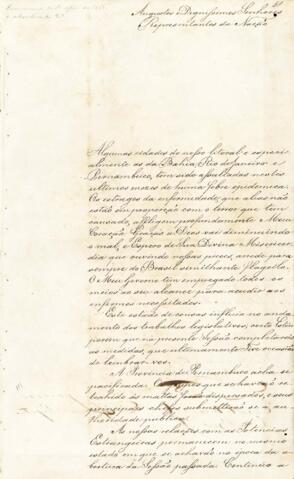 Augustos e Dignissimos Senhores
Representantes da Nação
Algumas cidades do nosso litoral e especi-
almente as da Bahia, Rio de Janeiro e
Pernambuco, tem sido assaltadas nestes
ultimos mezes de huma febre epidemica.
Os estragos da enfermidade, que alias não
estão em proporção com o terror que tem
causado, affligem profundamente o Meu
Coração. Graças a Deos vai diminuindo
o mal, e Espero de Sua Divina Misericor-
dia que ouvindo nossas preces, arrede para
sempre do Brasil semilhante flagello.
O Meu Governo tem empregado todos os
meios ao seu alcance para acudir aos
enfermos necessitados.
Este estado de cousas influio no anda-
mento dos trabalhos legislativos; certo Estou
porem que na presente Sessão completareis
as medidas, que ultimamente Tive occasião
de lembrar-vos.
A Provincia de Pernambuco acha-se
pacificada. que se
as mattas dispersados, e seus
principaes chefes submetterão-se a au-
thoridade publica.
As nossas relações com as Potencias
Estrangeiras permanecem no mesmo
estado em que se achavão na epoca da a-
bertura da Sessão passada. Continúo a